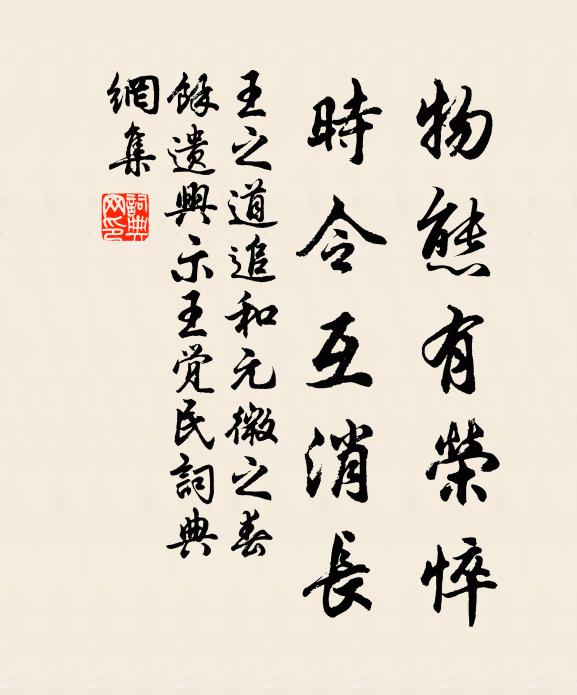 物態有榮悴
時令互消長
王之道追和元微之春
餘遣興示王覺民詞典
網集
詞典网印